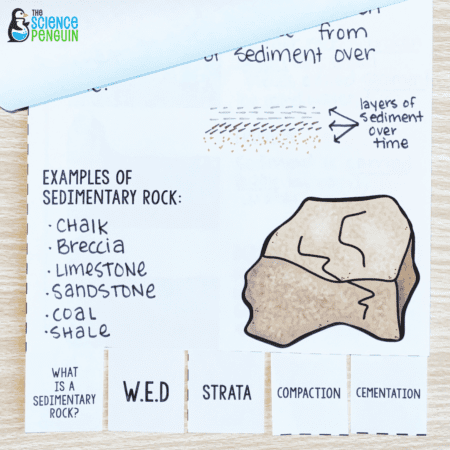 THE
SCIENCE
PENGUIN
from
of sediment over
layers of
sediment
over
time
EXAMPLES OF
SEDIMENTARY ROCK:
· CHAIK
· Breccia
· LIMESTONE
· SANDSTONE
· COAL
· SHALE
WHAT
IS A
SEDIMENTARY
ROCK?
W.E.D
STRATA
COMPACTION
CEMENTATION